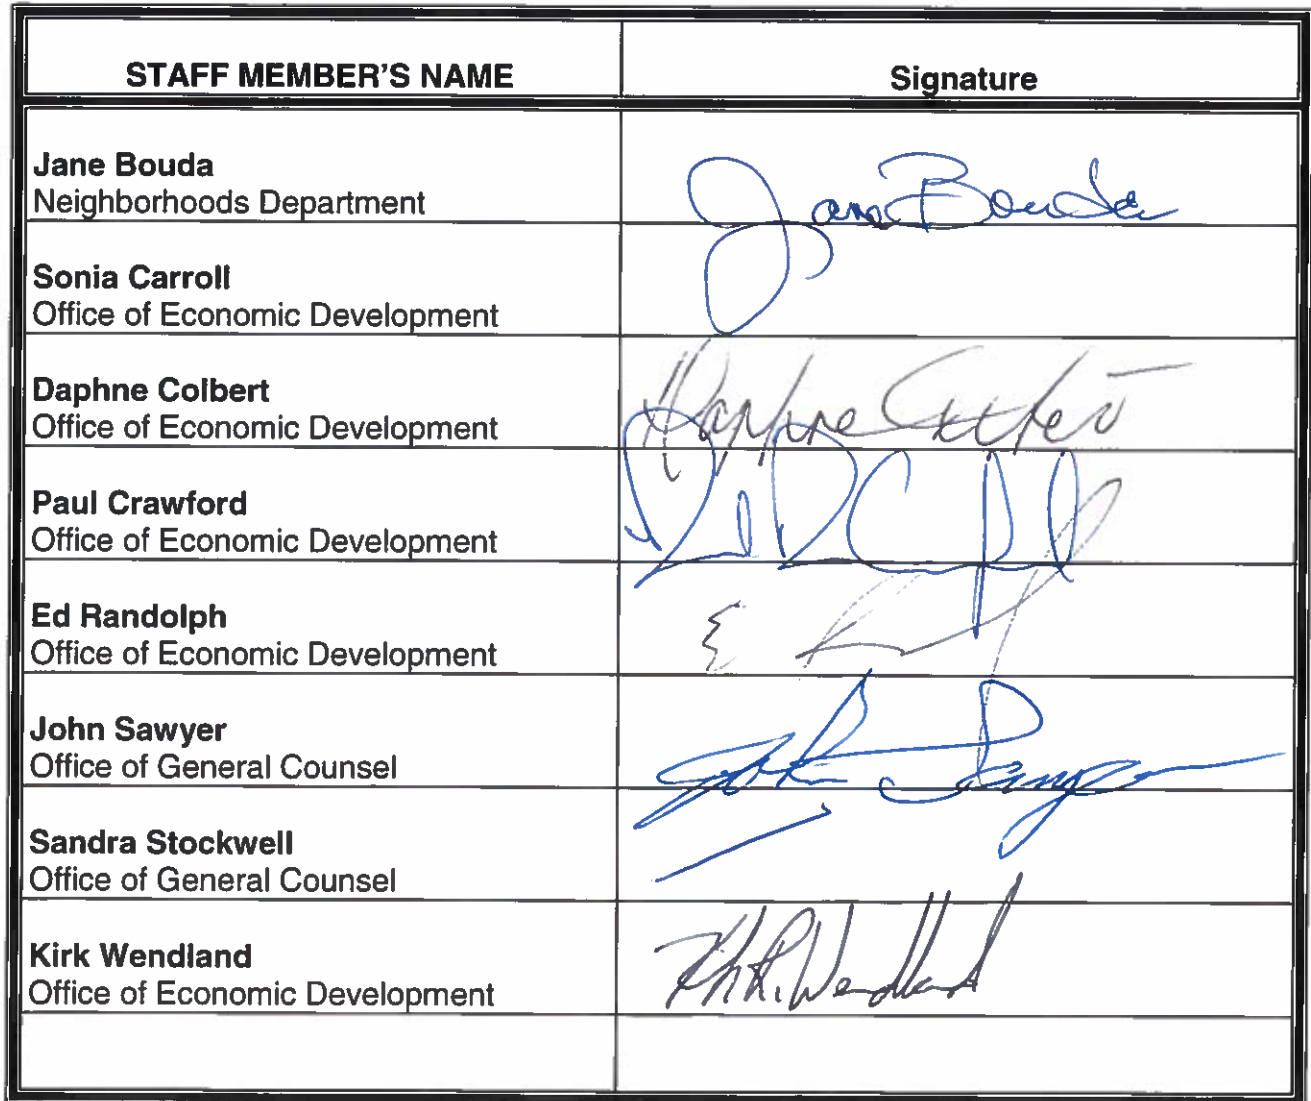 STAFF MEMBER'S NAME Signature
Jane Bouda
Neighborhoods Department
Jane Bouda
Sonia Carroll
Office of Economic Development
Daphne Colbert
Office of Economic Development
Daphne Colbert
Paul Crawford
Office of Economic Development
Ed Randolph
Office of Economic Development
John Sawyer
Office of General Counsel
John Sawyer
Sandra Stockwell
Office of General Counsel
Kirk Wendland
Office of Economic Development
Kirk Wendland